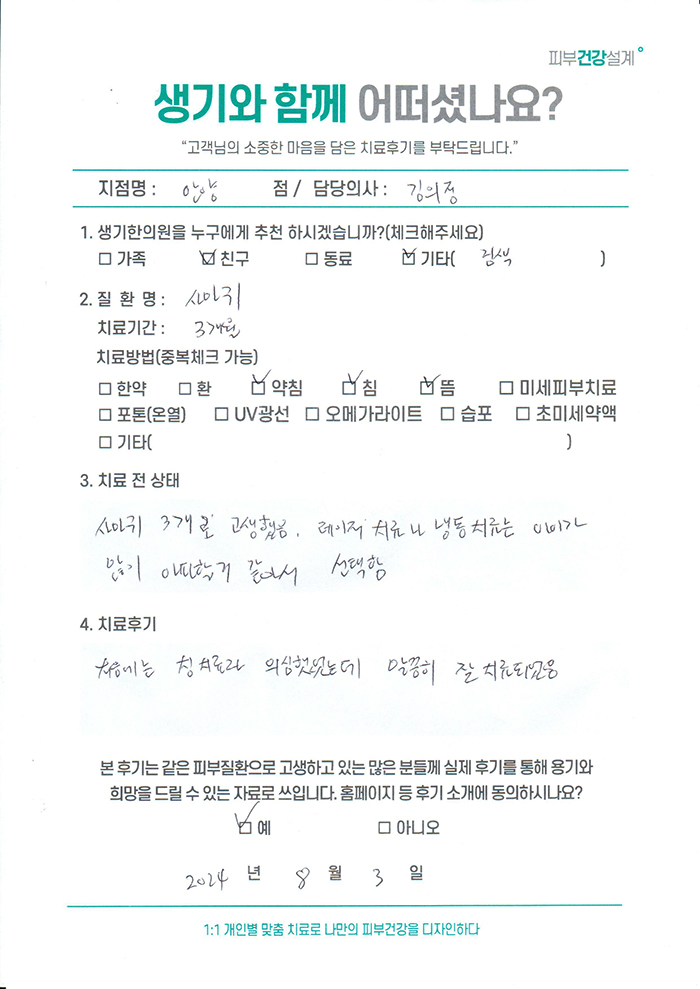 피부건강설계
생기와 함께 어떠셨나요?
“고객님의 소중한 마음을 담은 치료후기를 부탁드립니다.”
지점명 : 안양 점 / 담당의사 : 김의정
1. 생기한의원을 누구에게 추천 하시겠습니까?(체크해주세요)
□ 가족 ☑ 친구 □ 동료 ☑ 기타( 검색 )
2. 질 환 명 : 사마귀
치료기간 : 3개월
치료방법(중복체크 가능)
□ 한약 □ 환 ☑ 약침 ☑ 침 ☑ 뜸 □ 미세피부치료
□ 포톤(온열) □ UV광선 □ 오메가라이트 □ 습포 □ 초미세약액
□ 기타( )
3. 치료 전 상태
사마귀 3개로 고생했음. 레이저 치료나 냉동치료는 아이가
많이 아파할거 같아서 선택함
4. 치료후기
처음에는 침치료라 의심했었는데 말끔히 잘 치료되었음
본 후기는 같은 피부질환으로 고생하고 있는 많은 분들께 실제 후기를 통해 용기와
희망을 드릴 수 있는 자료로 쓰입니다. 홈페이지 등 후기 소개에 동의하시나요?
☑ 예 □ 아니오
2024 년 8 월 3 일
1:1 개인별 맞춤 치료로 나만의 피부건강을 디자인하다